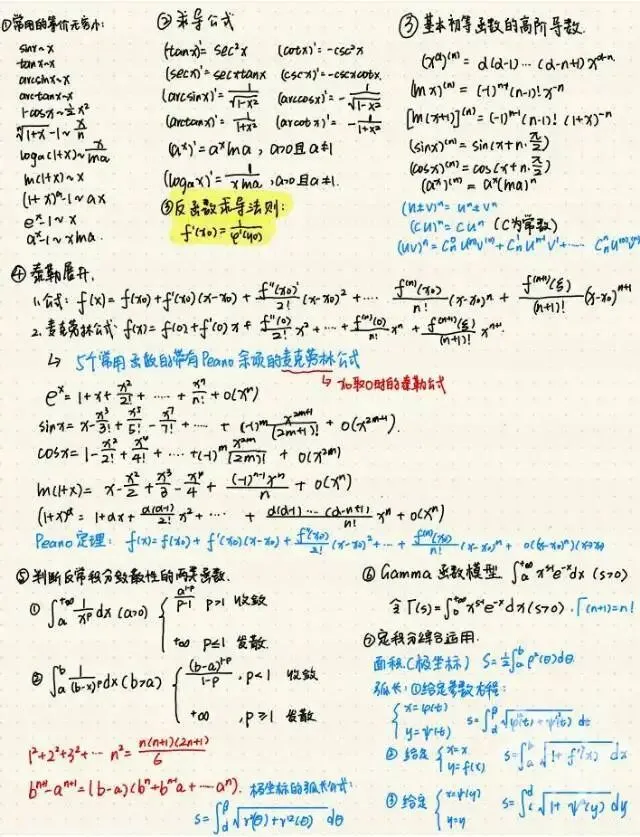 ①常用的等价无穷小:
sinx~x
tanx~x
arcsinx~x
arctanx~x
1-cosx~½x²
ⁿ√(1+x)-1~x/n
logₐ(1+x)~x/lna
ln(1+x)~x
(1+x)ᵅ-1~αx
eˣ-1~x
aˣ-1~xlna.
②求导公式
(tanx)'=sec²x (cotx)'=-csc²x
(secx)'=secxtanx (cscx)'=-cscxcotx.
(arcsinx)'=1/√(1-x²) (arccosx)'=-1/√(1-x²)
(arctanx)'=1/(1+x²) (arccotx)'=-1/(1+x²)
(aˣ)'=aˣlna, a>0且a≠1
(logₐx)'=1/(xlna), a>0且a≠1.
③反函数求导法则:
f'(x₀)=1/φ'(y₀)
③基本初等函数的高阶导数.
(xᵅ)⁽ⁿ⁾=α(α-1)···(α-n+1)xᵅ⁻ⁿ.
(lnx)⁽ⁿ⁾=(-1)ⁿ⁻¹(n-1)!x⁻ⁿ
[ln(x+1)]⁽ⁿ⁾=(-1)ⁿ⁻¹(n-1)!(1+x)⁻ⁿ
(sinx)⁽ⁿ⁾=sin(x+n·π/2)
(cosx)⁽ⁿ⁾=cos(x+n·π/2)
(aˣ)⁽ⁿ⁾=aˣ(lna)ⁿ
(u±v)ⁿ=uⁿ±vⁿ
(Cu)ⁿ=Cuⁿ (C为常数)
④泰勒展开.
1.公式: f(x)=f(x₀)+f'(x₀)(x-x₀)+f''(x₀)/2!(x-x₀)²+···· f⁽ⁿ⁾(x₀)/n!(x-x₀)ⁿ+f⁽ⁿ⁺¹⁾(ξ)/(n+1)!(x-x₀)ⁿ⁺¹
2.麦克劳林公式: f(x)=f(0)+f'(0)x+f''(0)/2!x²+···+f⁽ⁿ⁾(0)/n!xⁿ+f⁽ⁿ⁺¹⁾(ξ)/(n+1)!xⁿ⁺¹
↳ 5个常用函数的带有Peano余项的麦克劳林公式
↳x₀取0时的泰勒公式
eˣ=1+x+x²/2!+····+xⁿ/n!+o(xⁿ)
sinx=x-x³/3!+x⁵/5!-x⁷/7!+····+(-1)ᵐx²ᵐ⁺¹/(2m+1)!+o(x²ᵐ⁺¹).
cosx=1-x²/2+x⁴/4!+···+(-1)ᵐx²ᵐ/(2m)!+o(x²ᵐ)
ln(1+x)=x-x²/2+x³/3-x⁴/4+(-1)ⁿ⁻¹xⁿ/n+o(xⁿ)
(1+x)ᵅ=1+αx+α(α-1)/2!x²+····+α(α-1)···(α-n+1)/n!xⁿ+o(xⁿ)
Peano定理: f(x)=f(x₀)+f'(x₀)(x-x₀)+f''(x₀)/2!(x-x₀)²+···+f⁽ⁿ⁾(x₀)/n!(x-x₀)ⁿ+o((x-x₀)ⁿ)(x→x₀)
⑤判断反常积分敛散性的两类函数.
①∫ₐ⁺∞ 1/xᵖ dx(a>0) { a¹⁻ᵖ/(p-1) p>1 收敛
+∞ p≤1 发散.
②∫ₐᵇ 1/(b-x)ᵖ dx(b>a) { (b-a)¹⁻ᵖ/(1-p), p<1 收敛
+∞, p≥1 发散
1²+2²+3²+···n²=n(n+1)(2n+1)/6
bⁿ⁺¹-aⁿ⁺¹=(b-a)(bⁿ+bⁿ⁻¹a+···aⁿ). 极坐标的弧长公式:
S=∫ₐᵝ√(r²(θ)+r'²(θ)) dθ
⑥Gamma函数模型 ∫ₐ⁺∞xˢ⁻¹e⁻ˣdx(s>0)
令Γ(s)=∫₀⁺∞xˢ⁻¹e⁻ˣdx(s>0). Γ(n+1)=n!
⑦定积分综合运用.
面积(极坐标) S=½∫ₐᵝρ²(θ)dθ
弧长:①给定参数方程:
{x=φ(t) y=ψ(t) s=∫ₐᵝ√(φ'²(t)+ψ'²(t)) dt
②给定{x=x y=f(x) S=∫ₐᵇ√(1+f'²(x)) dx
③给定{x=ψ(y) y=y S=∫√(1+ψ'²(y)) dy